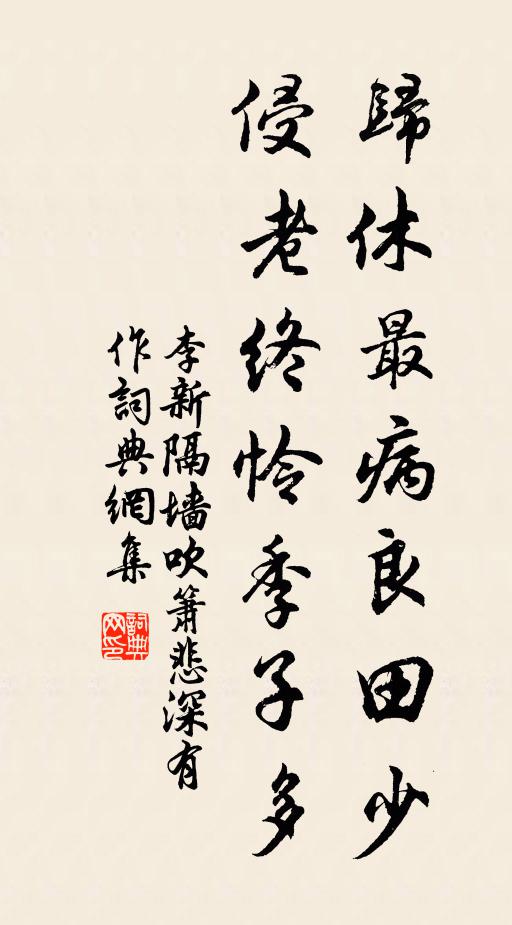 歸休最病良田少
侵老終怜季子多
李新隔墙吹簫悲深有
作詞典網集
詞典网印